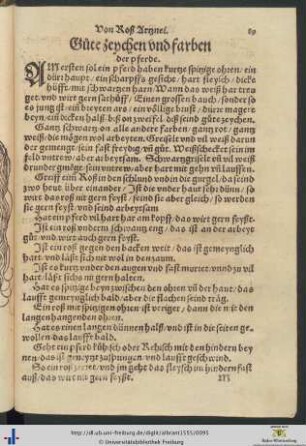 Von Roß Artznei. 69
Güte zeychen vnd farben
der pferde.
AM ersten sol ein pferd haben kurtze spitzige ohren/ ein
dürr haupt/ ein scharpffs gesicht/ hart fleysch/ dicke
hüfft/ mit schwartzen harn/ Wann das weiß har
get/ vnd wirt gern Einen grossen bauch/
es jung ist/ ein breyten ars/ ein völlige brust/ dürre magere
beyn/ ein dicken halß/ biß on zweifel diß seind güte zeychen.
Gantz schwartz on alle andere farben/ gantz rot/ gantz
weiß/ die mögen wol arbeyten. Greißele vnd vil weiß darun
der gemengt/ sein fast freydig vñ güt. Weißscheckët sein im
feld vntrew/ aber arbeytsam. Schwartzgrisele vñ vil weiß
drunder gmüge/ sein vntrew/ aber hart mit gehn vñ lauffen.
Greiff ein Roß in den schlund vnd in die gurgel/ da seind
zwo heut über einander/ Ist die vnder haut sehr dünn/ so
wirt das roß nit gern feyst/ seind sie aber gleich/ so werden
sie gern feyst/ vnd seind arbeytsam
Hat ein pferd vil hart har am kopff/ das wirt gern feyßt.
Ist ein roß vnderm schwantz eng/ das ist an der arbeyt
güt/ vnd wirt auch gern feyst.
Ist ein roß gegen den backen weit/ das ist gemeynglich
hart/ vnd laßt sich nit wol in den zaum.
Ist es kurtz vnder den augen vnd fast vnnd zu vil
hart/ laßt sichs nit gern halten.
Hat es spitzige beyn zwischen den ohren vñ der haut/ das
laufft gemeynglich bald/ aber die flachen seind träg.
Ein roß mit spitzigen ohren ist weniger/ dann die mit den
langen hangenden ohren.
Hat es einen langen dünnen halß/ vnd ist in die seiten ge-
wollen/ das laufft bald.
Geht ein pferd kühisch oder Rehisch mit den hindern bey
nen/ das ist vnd laufft geschwind.
So ein roß vnd im geht das fleysch im hindern fast
auß/ das wirt nit gern feyßt.
M
http://dl.ub.uni-freiburg.de/diglit/albrant1555/0095
© Universitätsbibliothek Freiburg
Baden-Württemberg